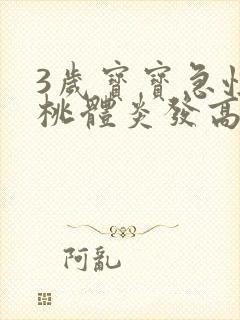 3歲寶寶急性扁
桃體炎發高
阿亂